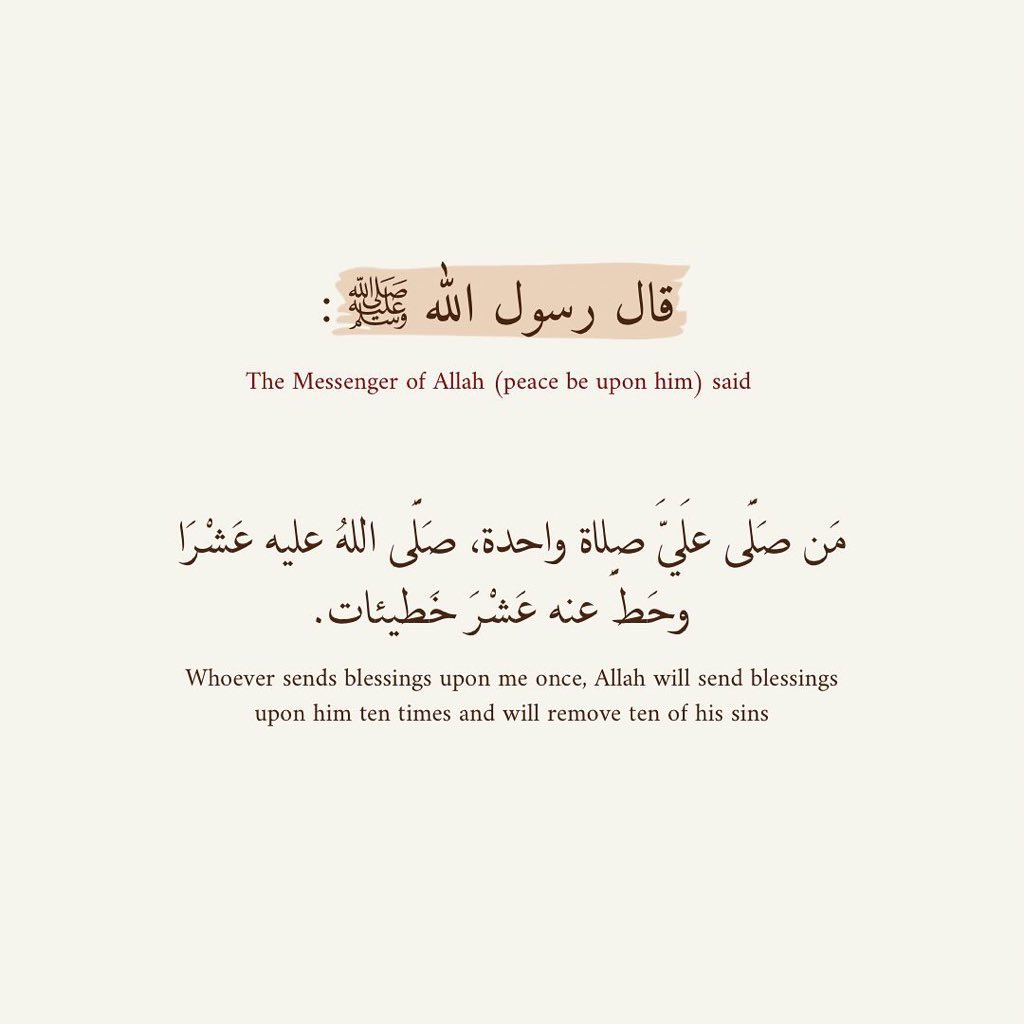 قال رسول الله ﷺ :
The Messenger of Allah (peace be upon him) said
مَن صَلَّى علَيَّ صلاة واحدة، صَلَّى اللهُ عليه عَشْرَا
وحَطّ عنه عَشْرَ خَطيئات.
Whoever sends blessings upon me once, Allah will send blessings
upon him ten times and will remove ten of his sins